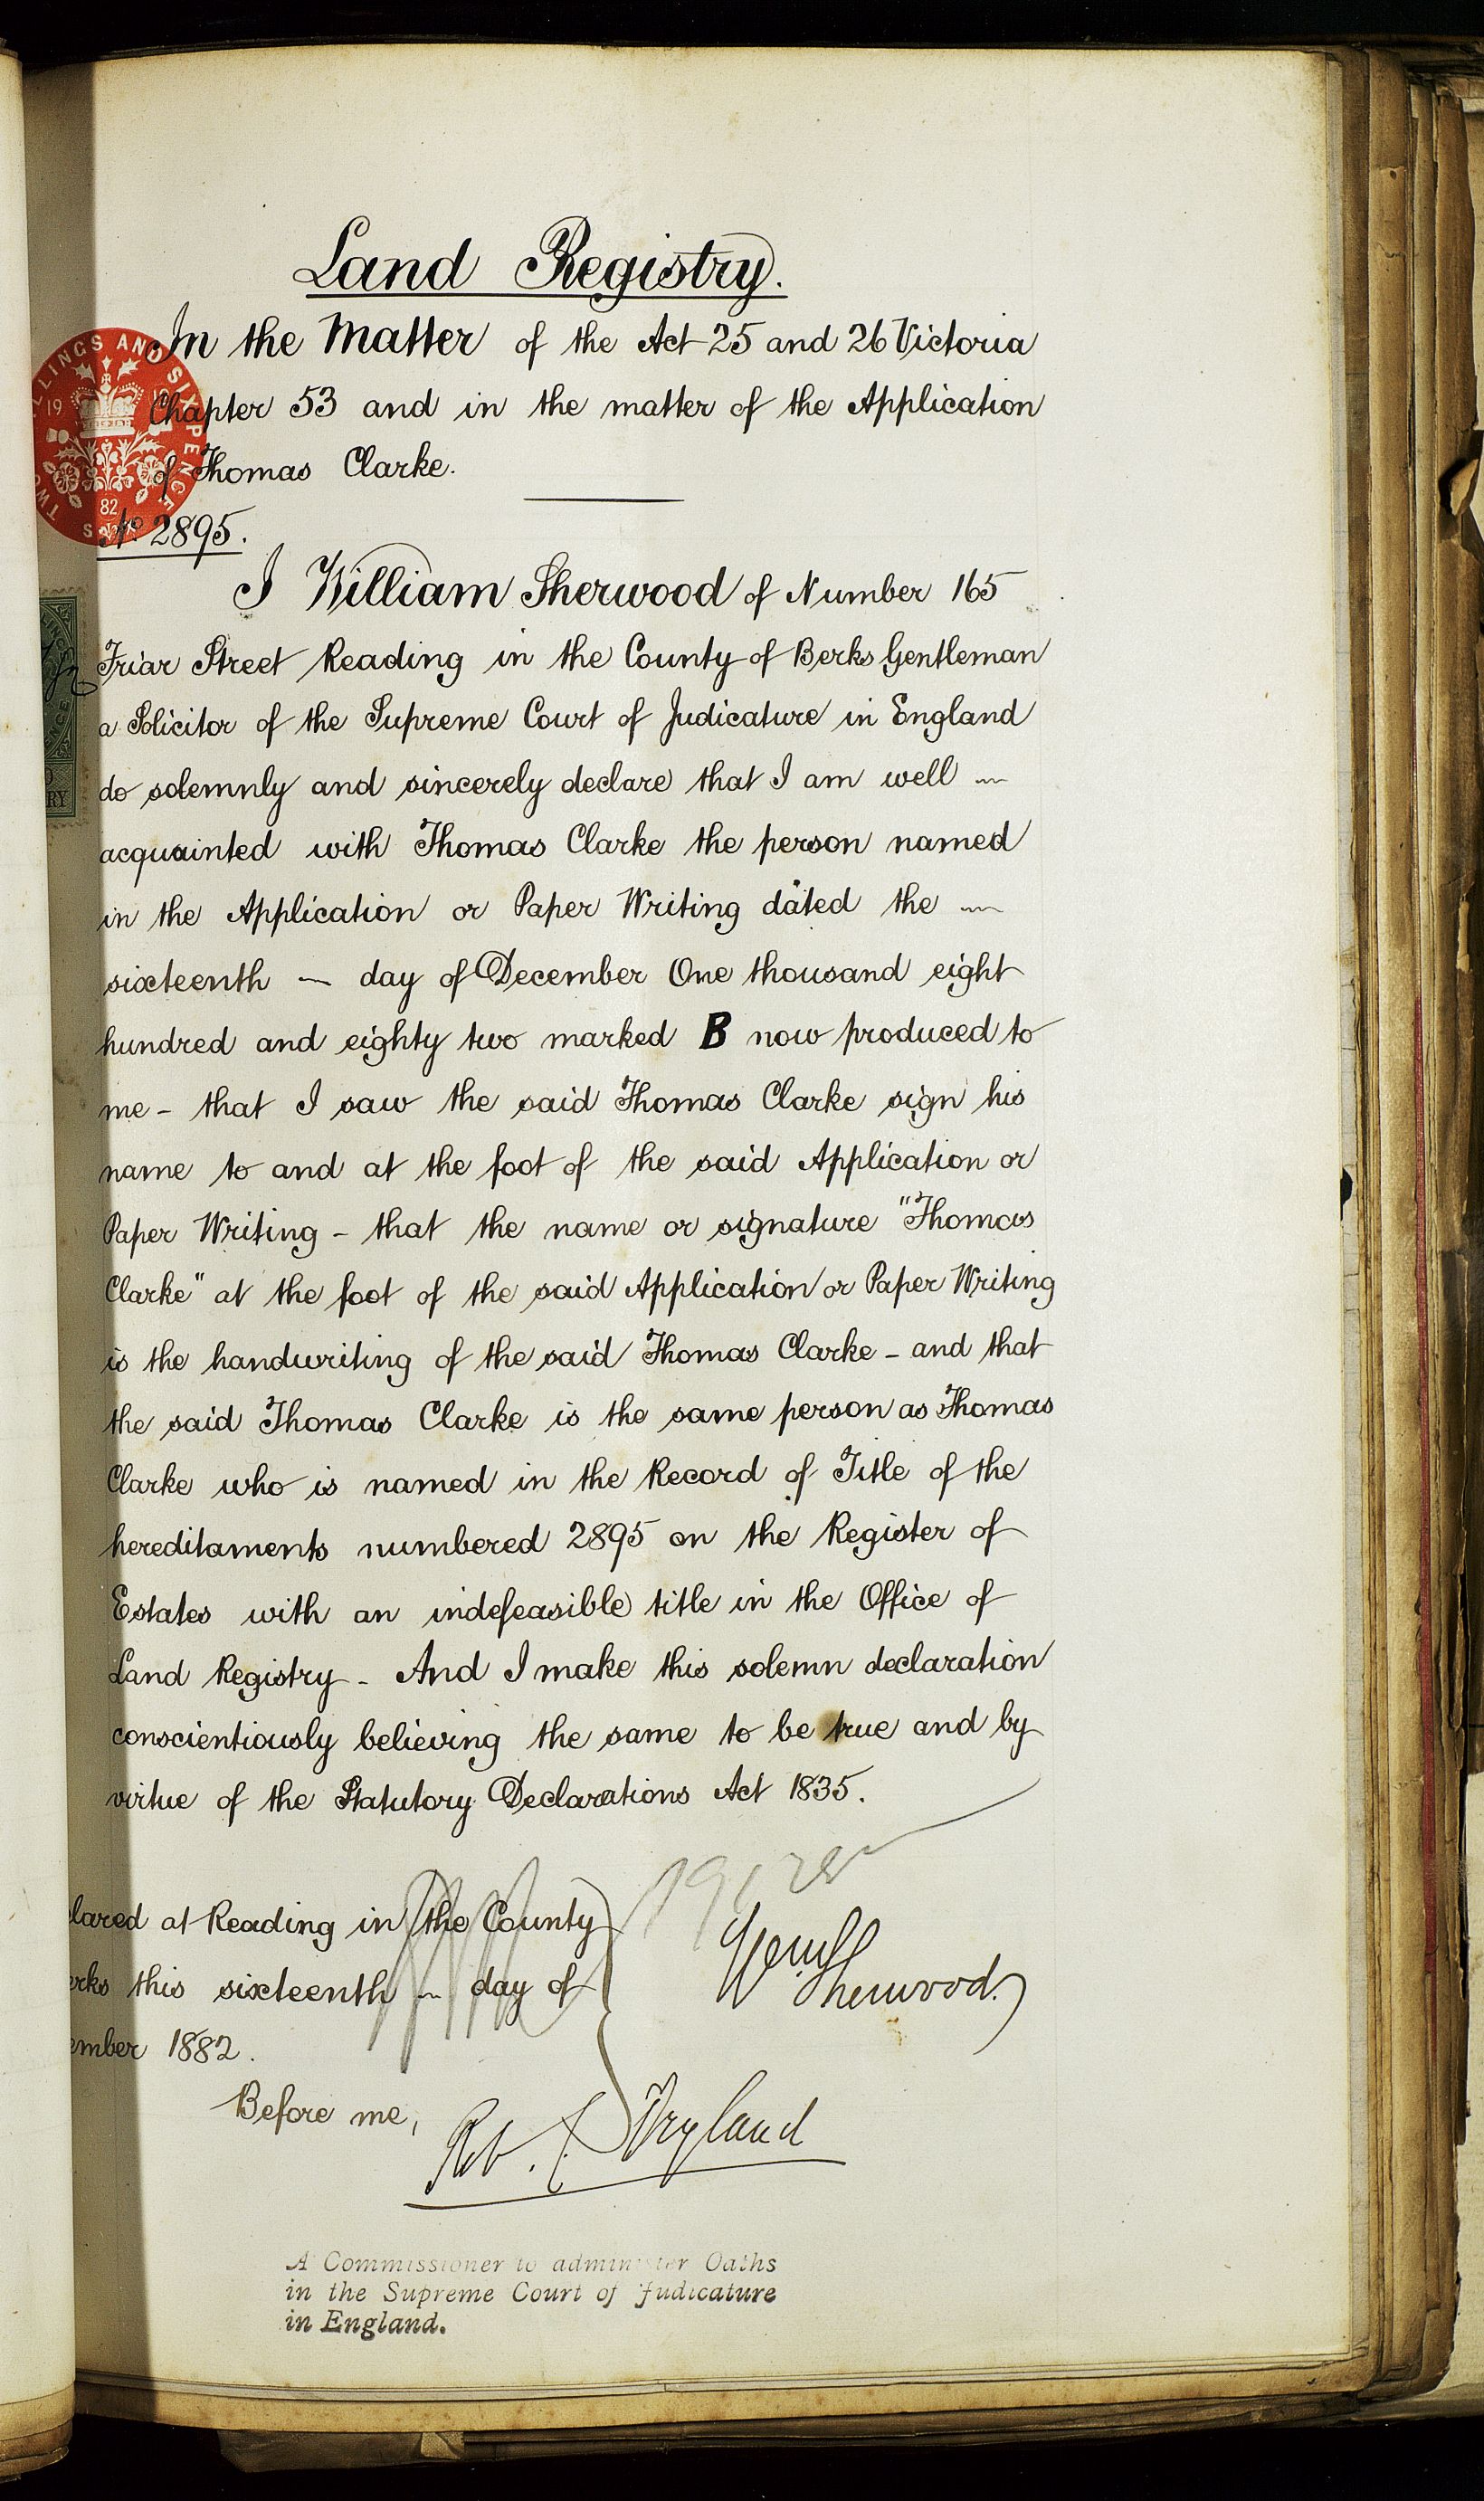 Land Registry.
In the Matter of the Act 25 and 26 Victoria
Chapter 53 and in the matter of the Application
of Thomas Clarke.
No 2895.
I William Sherwood of Number 165
Friar Street Reading in the County of Berks Gentleman
a Solicitor of the Supreme Court of Judicature in England
do solemnly and sincerely declare that I am well
acquainted with Thomas Clarke the person named
in the Application or Paper Writing dated the
sixteenth — day of December One thousand eight
hundred and eighty two marked B now produced to
me - that I saw the said Thomas Clarke sign his
name to and at the foot of the said Application or
Paper Writing - that the name or signature "Thomas
Clarke" at the foot of the said Application or Paper Writing
is the handwriting of the said Thomas Clarke - and that
the said Thomas Clarke is the same person as Thomas
Clarke who is named in the Record of Title of the
hereditaments numbered 2895 on the Register of
Estates with an indefeasible title in the Office of
Land Registry - And I make this solemn declaration
conscientiously believing the same to be true and by
virtue of the Statutory Declarations Act 1835.
clared at Reading in the County
erks this sixteenth — day of
ember 1882.
Sherwood
Before me,
Dryland
A Commissioner to administer Oaths
in the Supreme Court of Judicature
in England.
LLINGS AND SIXPENCE
TWO
19
82
RY